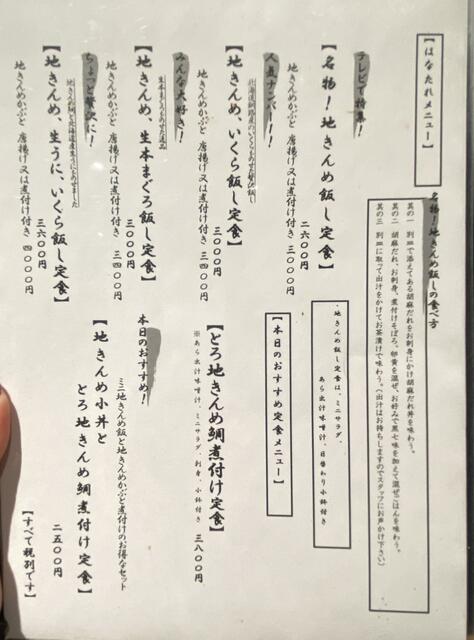 【はなたれメニュー】
名物！地きんめ飯しの食べ方
其の一　別皿で添えてある胡麻だれをお刺身にかけ胡麻だれ丼を味わう。
其の二　胡麻だれ、お刺身、煮付けそぼろ、卵黄を混ぜ、お好みで黒七味を加えて混ぜごはんを味わう。
其の三　別皿に取って出汁をかけてお茶漬けで味わう。（出汁はお持ちしますのでスタッフにお声かけ下さい）
テレビで特集！
【名物！地きんめ飯し定食】
二六〇〇円
地きんめかぶと　唐揚げ又は煮付け付き　三〇〇〇円
人気ナンバー１！
【地きんめ、いくら飯し定食】
三〇〇〇円
地きんめかぶと　唐揚げ又は煮付け付き　三四〇〇円
みんな大好き！
【地きんめ、生本まぐろ飯し定食】
三〇〇〇円
地きんめかぶと　唐揚げ又は煮付け付き　三四〇〇円
ちょっと贅沢に！
【地きんめ、生うに、いくら飯し定食】
三六〇〇円
地きんめかぶと　唐揚げ又は煮付け付き　四〇〇〇円
・地きんめ飯し定食は、ミニサラダ、
あら出汁味噌汁、日替わり小鉢付き
【本日のおすすめ定食メニュー】
【とろ地きんめ鯛煮付け定食】
三八〇〇円
※あら出汁味噌汁、ミニサラダ、刺身、小鉢付き
本日のおすすめ！
ミニ地きんめ飯と地きんめかぶと煮付けのお得なセット
【地きんめ小丼と
とろ地きんめ鯛煮付け定食】
二五〇〇円
【すべて税別です】